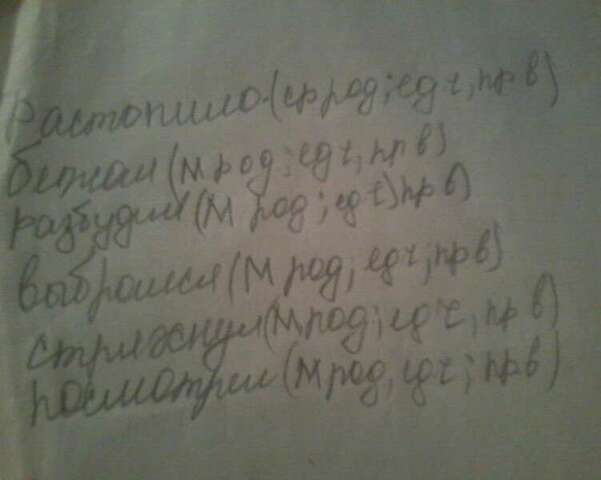 растопило (ср род; ед ч, пр в)
бежал (м род; ед ч, пр в)
разбудил (м род; ед ч) пр в)
выбрался (м род, ед ч, пр в)
стряхнул (м род; ед ч, пр в)
посмотрел (м род, ед ч; пр в)